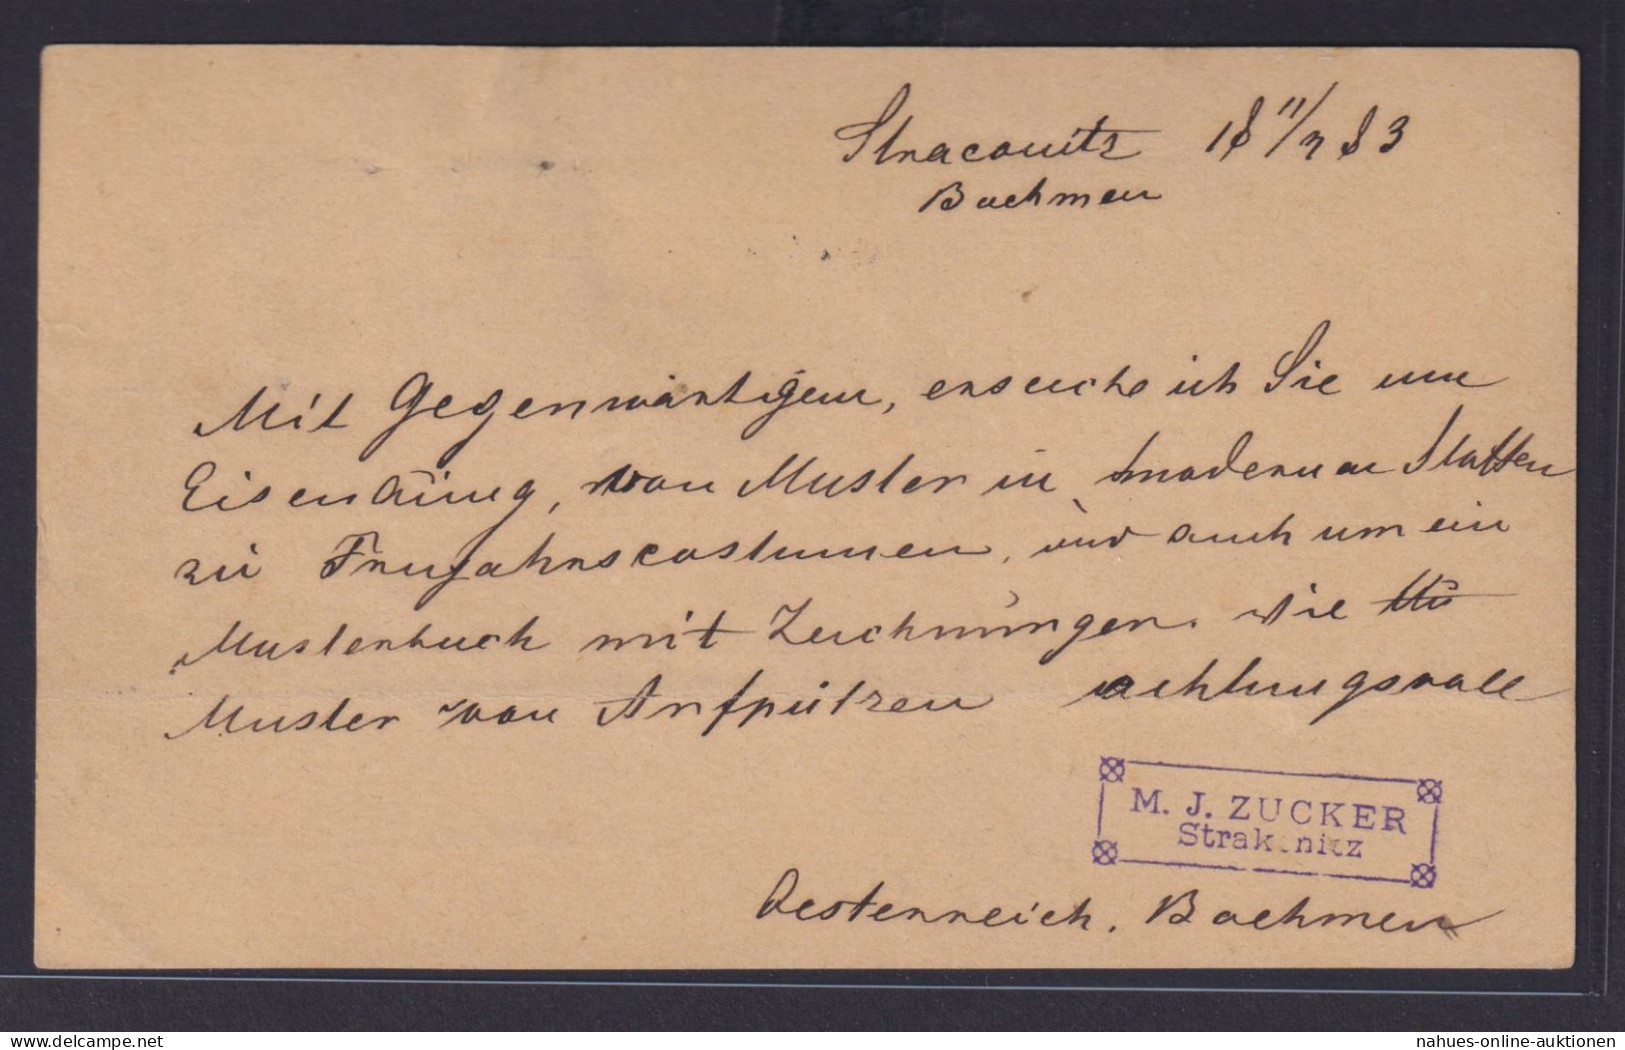 Straconitz 18 11/3 83
Boehmen
Mit Gegenwärtigem, ersuche ich Sie um
Einsendung, von Muster in modernen Stoffen
zu Frujahrscostumen, und auch um ein
Musterbuch mit Zeichnungen. wie
Muster von Aufputzen achtungsvoll
M. J. ZUCKER
Strakonitz
Oesterreich. Boehmen
nahues-online-auktionen